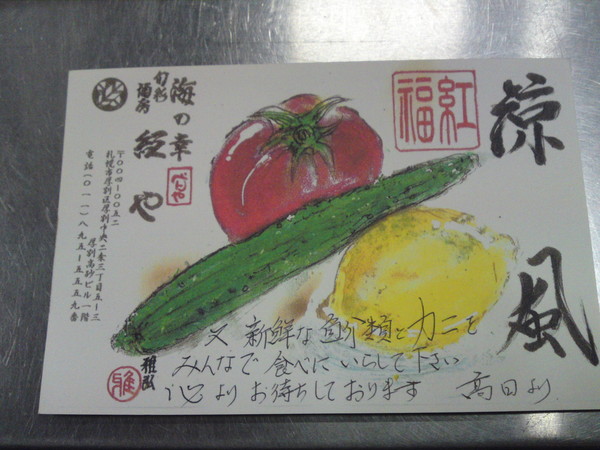 涼風
紅福
海の幸
旬彩
酒房
紅や
べにや
〒〇〇四-〇〇五二
札幌市厚別区厚別中央二条三丁目五-三
厚別高砂ビル一階
電話(〇一一)八九五-五五五九番
又 新鮮な魚介類とカニを
みんなで食べにいらして下さい
心よりお待ちしております 高田より
雅風
雅